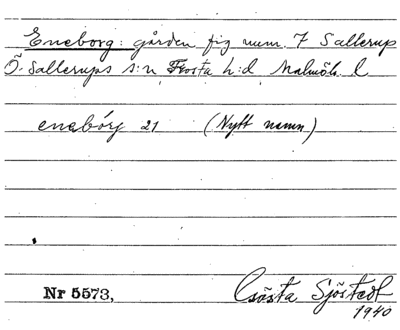 Eneborg: gården fig num. 7 Sallerup
Ö. Sallerups s:n Frosta h:d Malmöh. l
enebórg 21 (Nytt namn)
Nr 5573,
Gösta Sjöstedt
1940